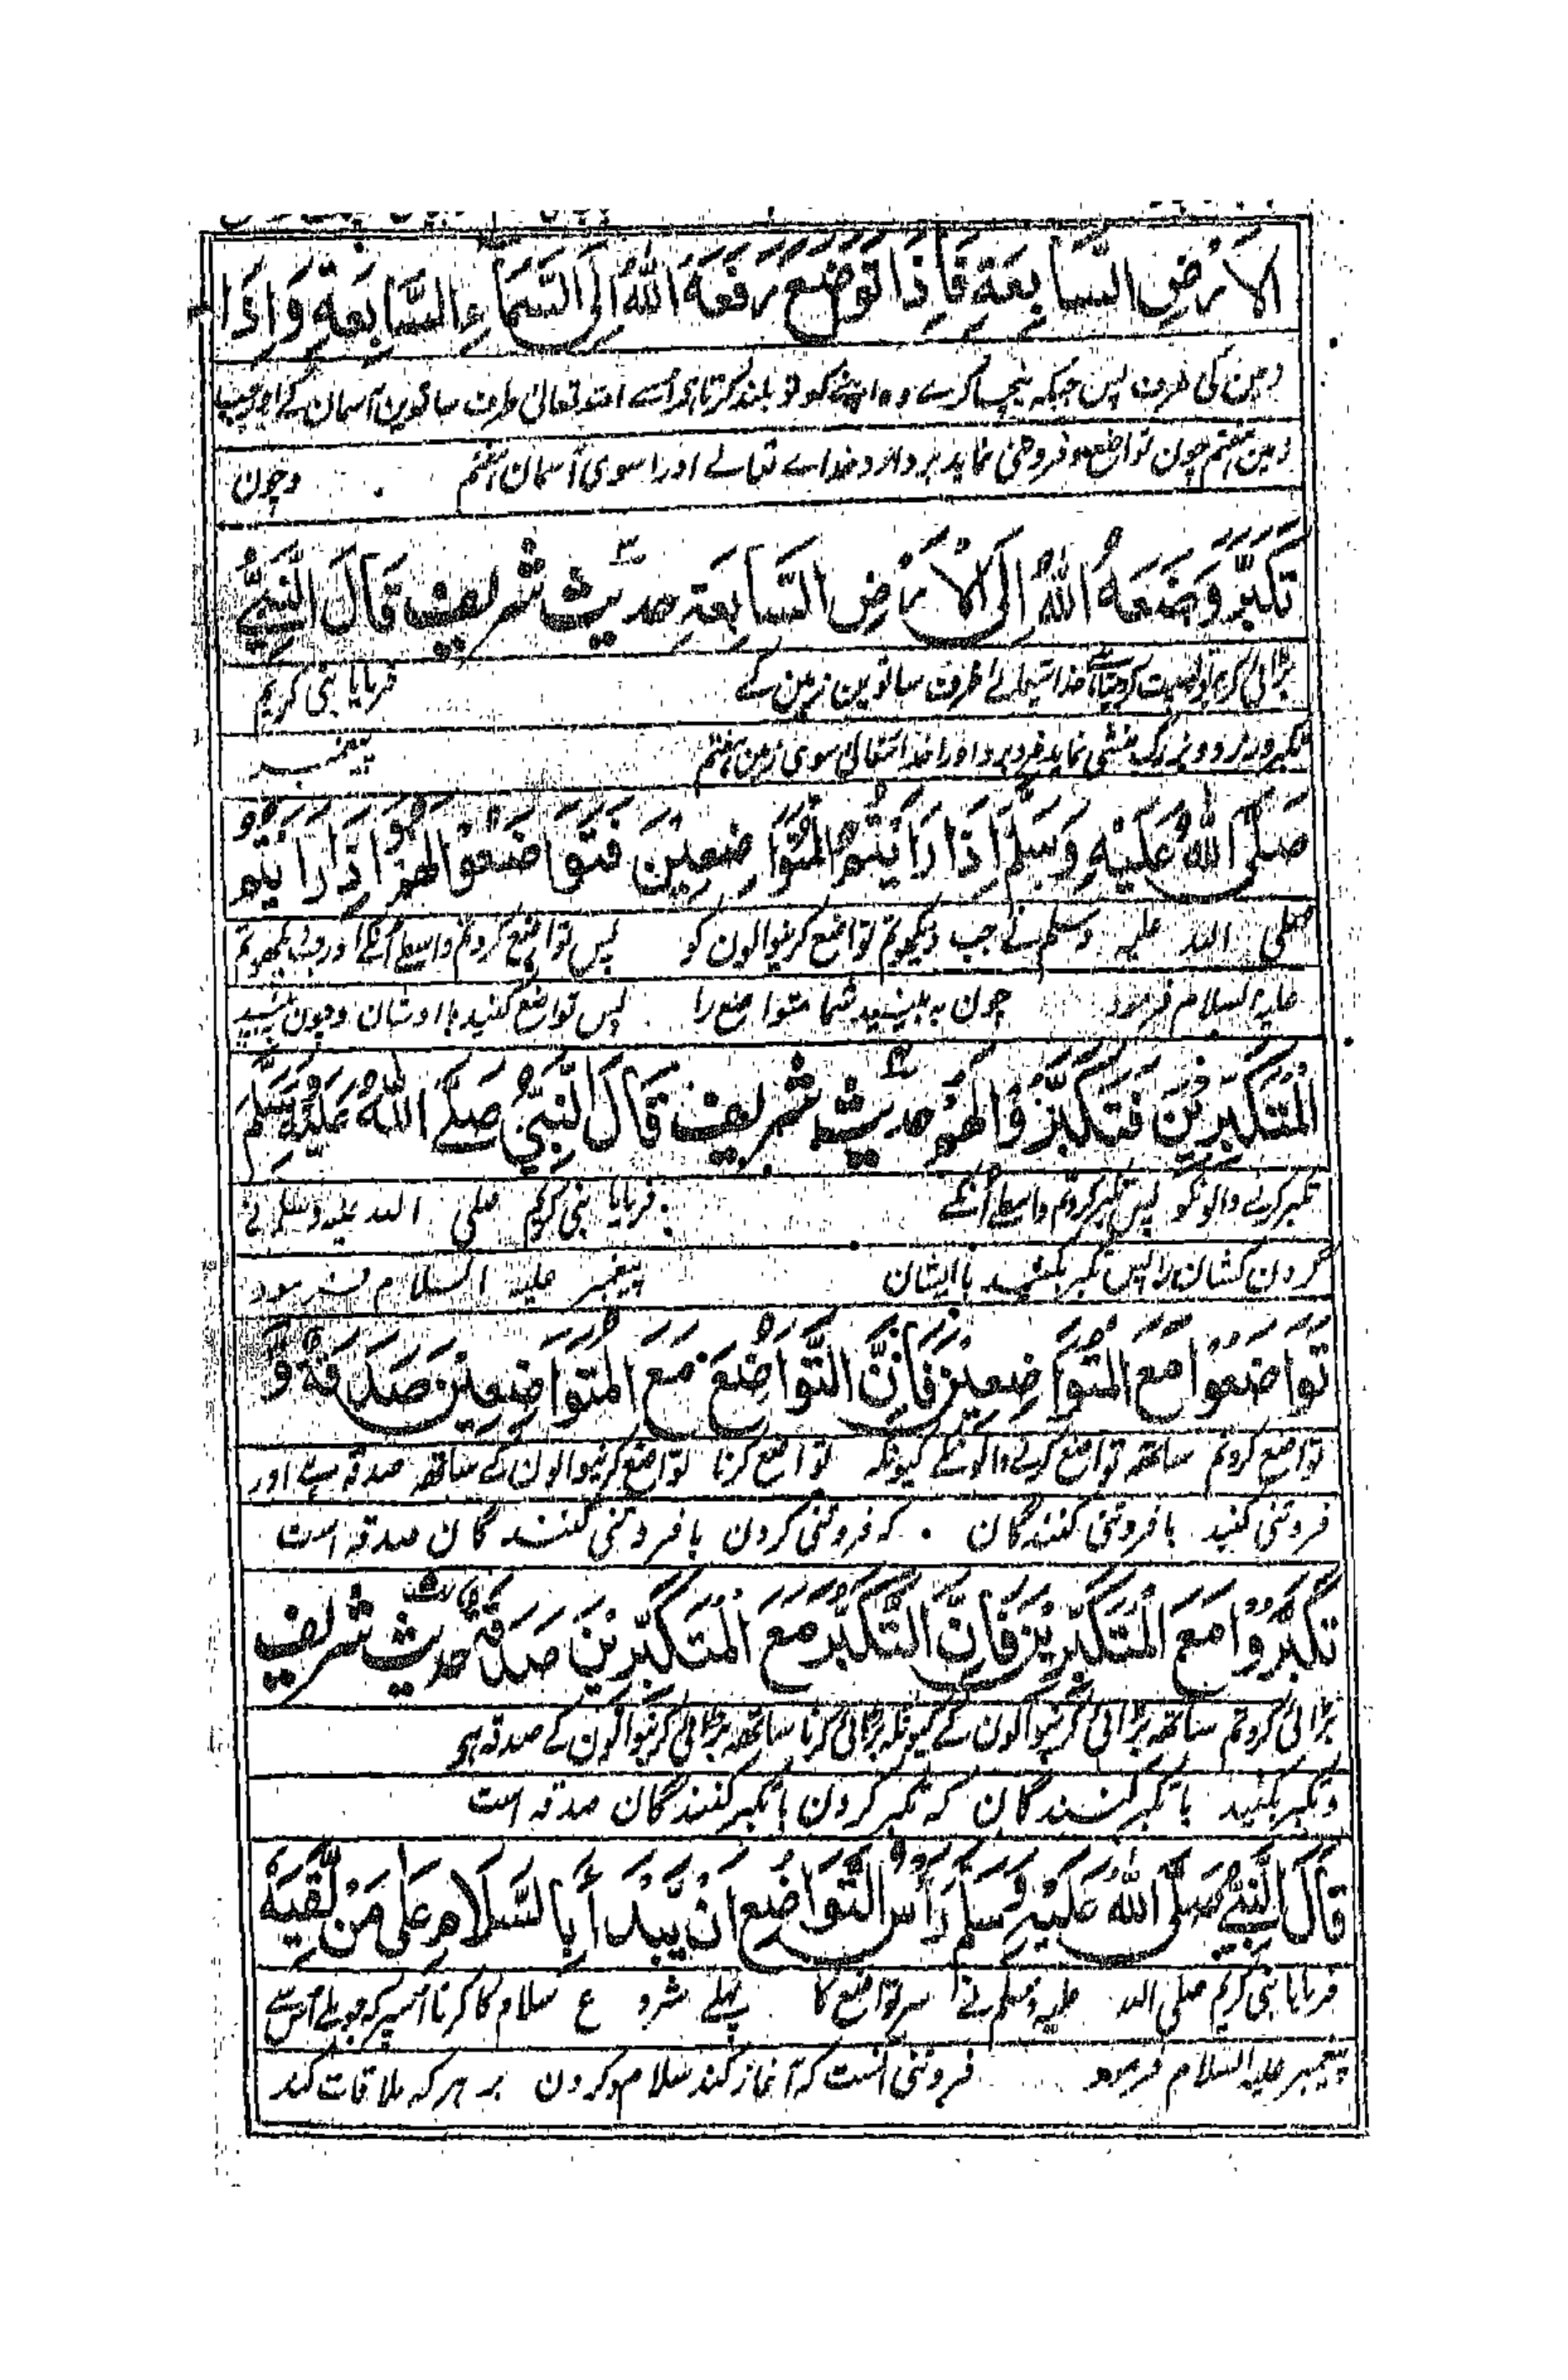 الْاَرْضِ السَّابِعَةِ فَاِذَا تَوَضَعَ رَفَعَهُ اللّٰهُ اِلَى السَّمَاءِ السَّابِعَةِ وَاِذَا
زمین کی طرف پس جبکہ نیچا کرے وہ اپنے کو تو بلند کرتا ہے اُسے اللہ تعالیٰ طرف ساتوین آسمان کے اور جب
زمین ہفتم چون تواضع و فروتنی نماید بردارد خداے تعالے اورا سوی آسمان ہفتم وچون
تَكَبَّرَ وَضَعَهُ اللّٰهُ اِلَى الْاَرْضِ السَّابِعَةِ حدیث ۳ شریف قَالَ النَّبِيُّ
بڑائی کرے تو پست کردیتا ہے خدا تعالے طرف ساتوین زمین کے فرمایا نبی کریم
تکبر ورزد و بزرگ منشی نماید فرو برد اورا خدا تعالیٰ سوی زمین ہفتم پیغمبر
صَلَّى اللّٰهُ عَلَيْهِ وَسَلَّمَ اِذَا رَاَيْتُمُ الْمُتَوَاضِعِيْنَ فَتَوَاضَعُوْا لَهُمْ وَاِذَا رَاَيْتُمُ
صلی اللہ علیہ وسلم نے جب دیکھو تم تواضع کرنیوالون کو پس تواضع کرو تم واسطے اُنکے اور جب دیکھو تم
علیہ السلام فرمود چون بہ بینید شما متواضع را پس تواضع کنید با اوشان وچون بینید
الْمُتَكَبِّرِيْنَ فَتَكَبَّرُوْا لَهُمْ حدیث ۴ شریف قَالَ النَّبِيُّ صَلَّى اللّٰهُ عَلَيْهِ وَسَلَّمَ
تکبر کرنے والونکو پس تکبر کرو تم واسطے اُنکے فرمایا نبی کریم صلی اللہ علیہ وسلم نے
گردن کشان را پس تکبر بکنید با ایشان پیغمبر علیہ السلام فرمود
تَوَاضَعُوْا مَعَ الْمُتَوَاضِعِيْنَ فَاِنَّ التَّوَاضُعَ مَعَ الْمُتَوَاضِعِيْنَ صَدَقَةٌ وَّ
تواضع کرو تم ساتھ تواضع کرنے والونکے کیونکہ تواضع کرنا تواضع کرنیوالون کے ساتھ صدقہ ہے اور
فروتنی کنید با فروتنی کنندگان کہ فروتنی کردن با فروتنی کنندگان صدقہ است
تَكَبَّرُوْا مَعَ الْمُتَكَبِّرِيْنَ فَاِنَّ التَّكَبُّرَ مَعَ الْمُتَكَبِّرِيْنَ صَدَقَةٌ حدیث ۵ شریف
بڑائی کرو تم ساتھ بڑائی کرنیوالون کے کیونکہ بڑائی کرنا ساتھ بڑائی کرنیوالون کے صدقہ ہی
وتکبر بکنید با تکبر کنندگان کہ تکبر کردن با تکبر کنندگان صدقہ است
قَالَ النَّبِيُّ صَلَّى اللّٰهُ عَلَيْهِ وَسَلَّمَ رَاْسُ التَّوَاضُعِ اَنْ يَّبْدَأَ بِالسَّلَامِ عَلٰى مَنْ لَّقِيَهُ
فرمایا نبی کریم صلی اللہ علیہ وسلم نے سر تواضع کا پہلے شروع سلام کا کرنا اُسپر کہ جو ملے اُس سے
پیغمبر علیہ السلام فرمود فروتنی آنست کہ آغاز کند سلام کردن بر ہر کہ ملاقات کند